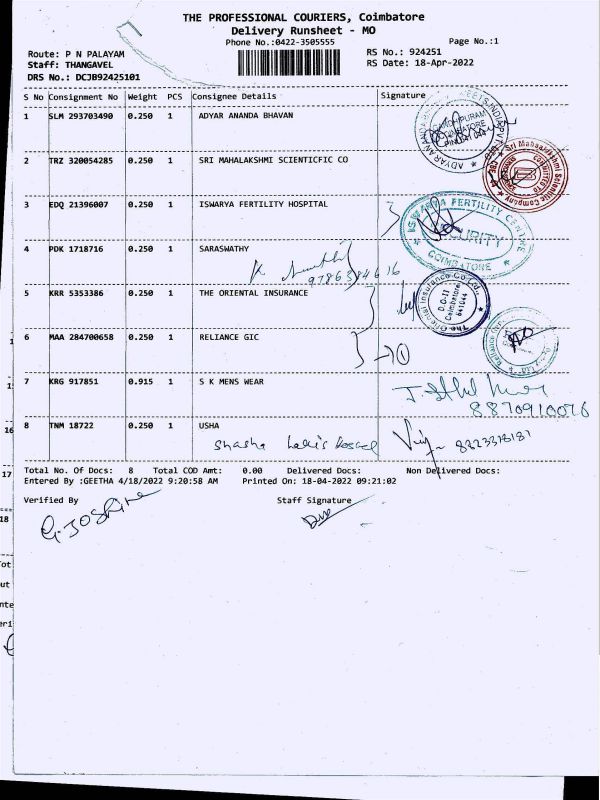 THE PROFESSIONAL COURIERS, Coimbatore
Delivery Runsheet - MO
Phone No.:0422-3505555
Page No.:1
Route: P N PALAYAM
RS No.: 924251
Staff: THANGAVEL
RS Date: 18-Apr-2022
DRS No.: DCJB92425101
S No Consignment No Weight PCS Consignee Details Signature
1 SLM 293703490 0.250 1 ADYAR ANANDA BHAVAN
2 TRZ 320054285 0.250 1 SRI MAHALAKSHMI SCIENTICFIC CO
Sri Mahalakshmi Scientific Company
3 EDQ 21396007 0.250 1 ISWARYA FERTILITY HOSPITAL
ISWARYA FERTILITY CENTRE
SECURITY
COIMBATORE
4 PDK 1718716 0.250 1 SARASWATHY
5 KRR 5353386 0.250 1 THE ORIENTAL INSURANCE
The Oriental Insurance Co. Ltd.
D.O-II
Coimbatore
641044
6 MAA 284700658 0.250 1 RELIANCE GIC
7 KRG 917851 0.915 1 S K MENS WEAR
8870910076
8 TNM 18722 0.250 1 USHA
8823318181
Total No. Of Docs: 8 Total COD Amt: 0.00 Delivered Docs: Non Delivered Docs:
Entered By :GEETHA 4/18/2022 9:20:58 AM Printed On: 18-04-2022 09:21:02
Verified By Staff Signature